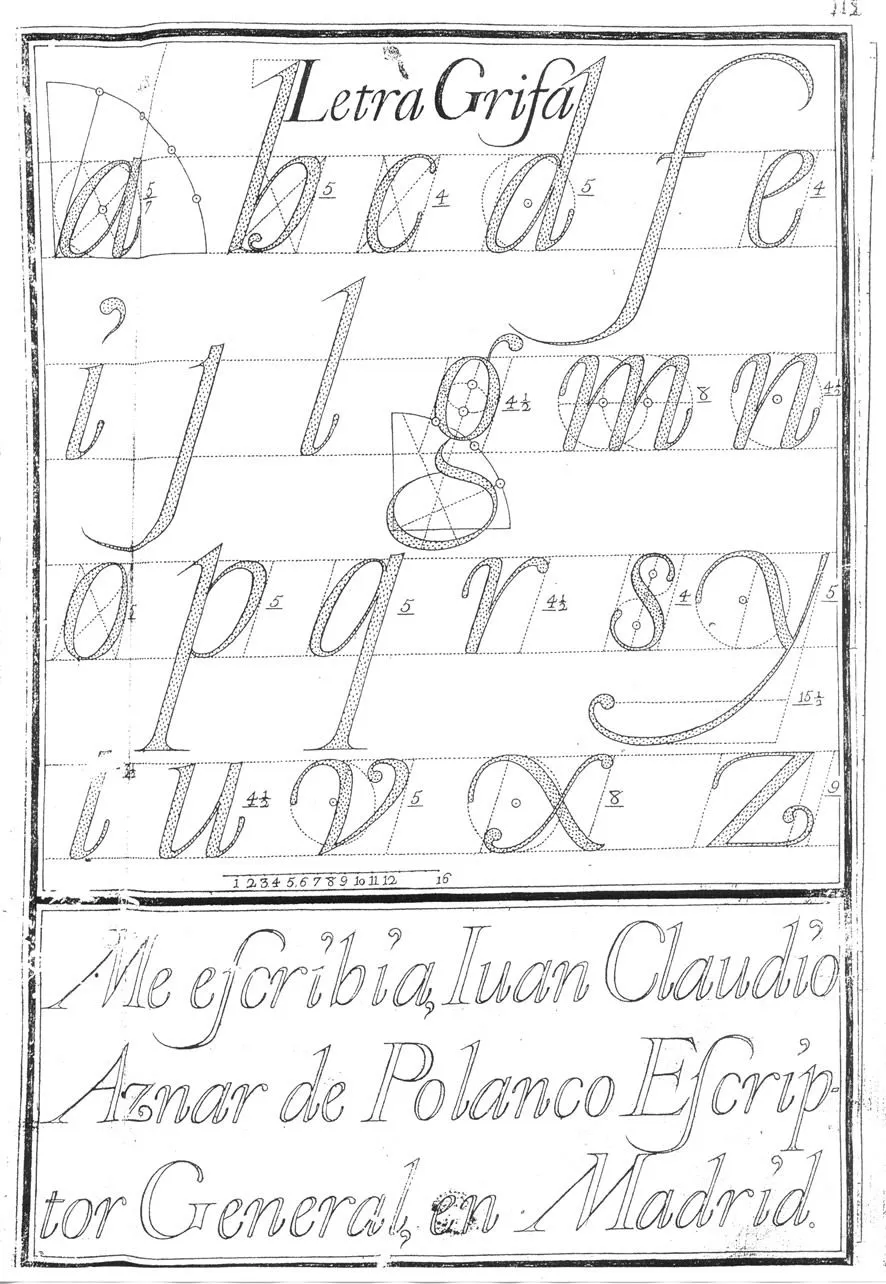 118
Letrà Grifa
a 5/7 b 5 c 4 d 5 f e 4
i j l g 4½ m 8 n 4½
o p 5 q 5 r 4½ s 4 y 5
15½
i u 4½ v 5 x 8 z 9
1 2 3 4 5 6 7 8 9 10 11 12 16
Me eſcribia, Iuan Claudio
Aznar de Polanco Eſcrip-
tor General, en Madrid.